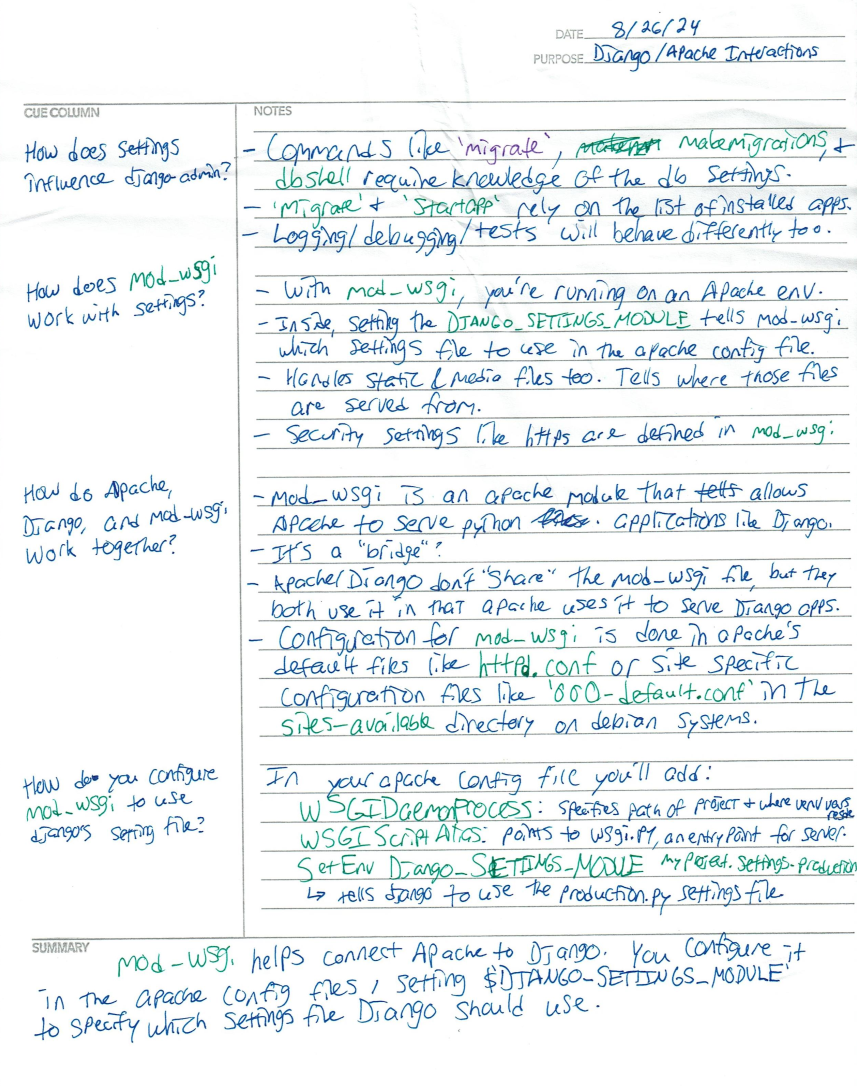 DATE 8/26/24
PURPOSE Django/Apache Interactions
CUE COLUMN
NOTES
How does settings
influence django-admin?
- Commands like 'migrate', makemigrations, +
dbshell require knowledge of the db settings.
- 'Migrate' + 'Startapp' rely on the list of installed apps.
- Logging/debugging/tests will behave differently too.
How does mod_wsgi
work with settings?
- With mod_wsgi, you're running on an Apache env.
- Inside, setting the DJANGO_SETTINGS_MODULE tells mod_wsgi
which settings file to use in the apache config file.
- Handles static & media files too. Tells where those files
are served from.
- Security settings like https are defined in mod_wsgi
How do Apache,
Django, and mod_wsgi
work together?
- Mod_wsgi is an apache module that tells allows
Apache to serve python applications like Django.
- It's a "bridge"?
- Apache/Django don't "share" the mod_wsgi file, but they
both use it in that apache uses it to serve Django apps.
- Configuration for mod_wsgi is done in apache's
default files like httpd.conf or site specific
configuration files like '000-default.conf' in the
sites-available directory on debian systems.
How do you configure
mod_wsgi to use
django's setting file?
In your apache config file you'll add:
WSGIDaemonProcess: specifies path of project + where venv vars
reside
WSGIScriptAlias: points to wsgi.py, an entry point for server.
SetEnv Django_SETTINGS_MODULE myproject.settings.production
↳ tells django to use the production.py settings file
SUMMARY
mod_wsgi helps connect Apache to Django. You configure it
in the apache config files, setting $DJANGO_SETTINGS_MODULE'
to specify which settings file Django should use.